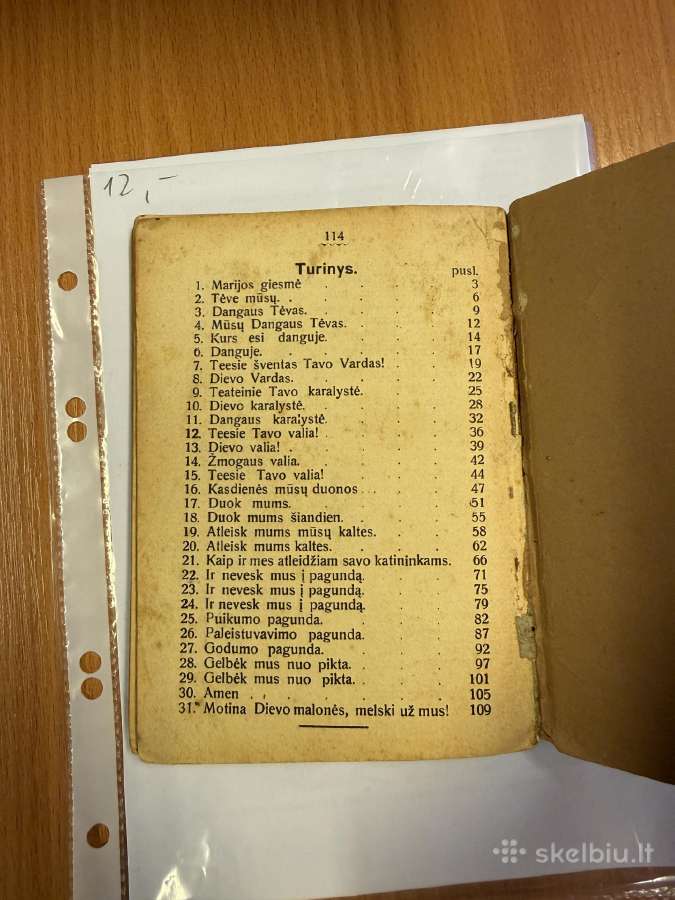 12,-
114
Turinys. pusl.
1. Marijos giesmė . . . . 3
2. Tėve mūsų. . . . . 6
3. Dangaus Tėvas. . . . 9
4. Mūsų Dangaus Tėvas. . . . 12
5. Kurs esi danguje. . . . 14
6. Danguje. . . . . 17
7. Teesie šventas Tavo Vardas! . . . 19
8. Dievo Vardas. . . . . 22
9. Teateinie Tavo karalystė. . . . 25
10. Dievo karalystė. . . . . 28
11. Dangaus karalystė. . . . 32
12. Teesie Tavo valia! . . . . 36
13. Dievo valia! . . . . 39
14. Žmogaus valia. . . . . 42
15. Teesie Tavo valia! . . . 44
16. Kasdienės mūsų duonos . . . 47
17. Duok mums. . . . . 51
18. Duok mums šiandien. . . . 55
19. Atleisk mums mūsų kaltes. . . . 58
20. Atleisk mums kaltes. . . . 62
21. Kaip ir mes atleidžiam savo katininkams. 66
22. Ir nevesk mus į pagundą. . . 71
23. Ir nevesk mus į pagundą. . . 75
24. Ir nevesk mus į pagundą. . . 79
25. Puikumo pagunda. . . . 82
26. Paleistuvavimo pagunda. . . . 87
27. Godumo pagunda. . . . 92
28. Gelbėk mus nuo pikta. . . . 97
29. Gelbėk mus nuo pikta. . . . 101
30. Amen . . . . . 105
31. Motina Dievo malonės, melski už mus! 109
skelbiu.lt